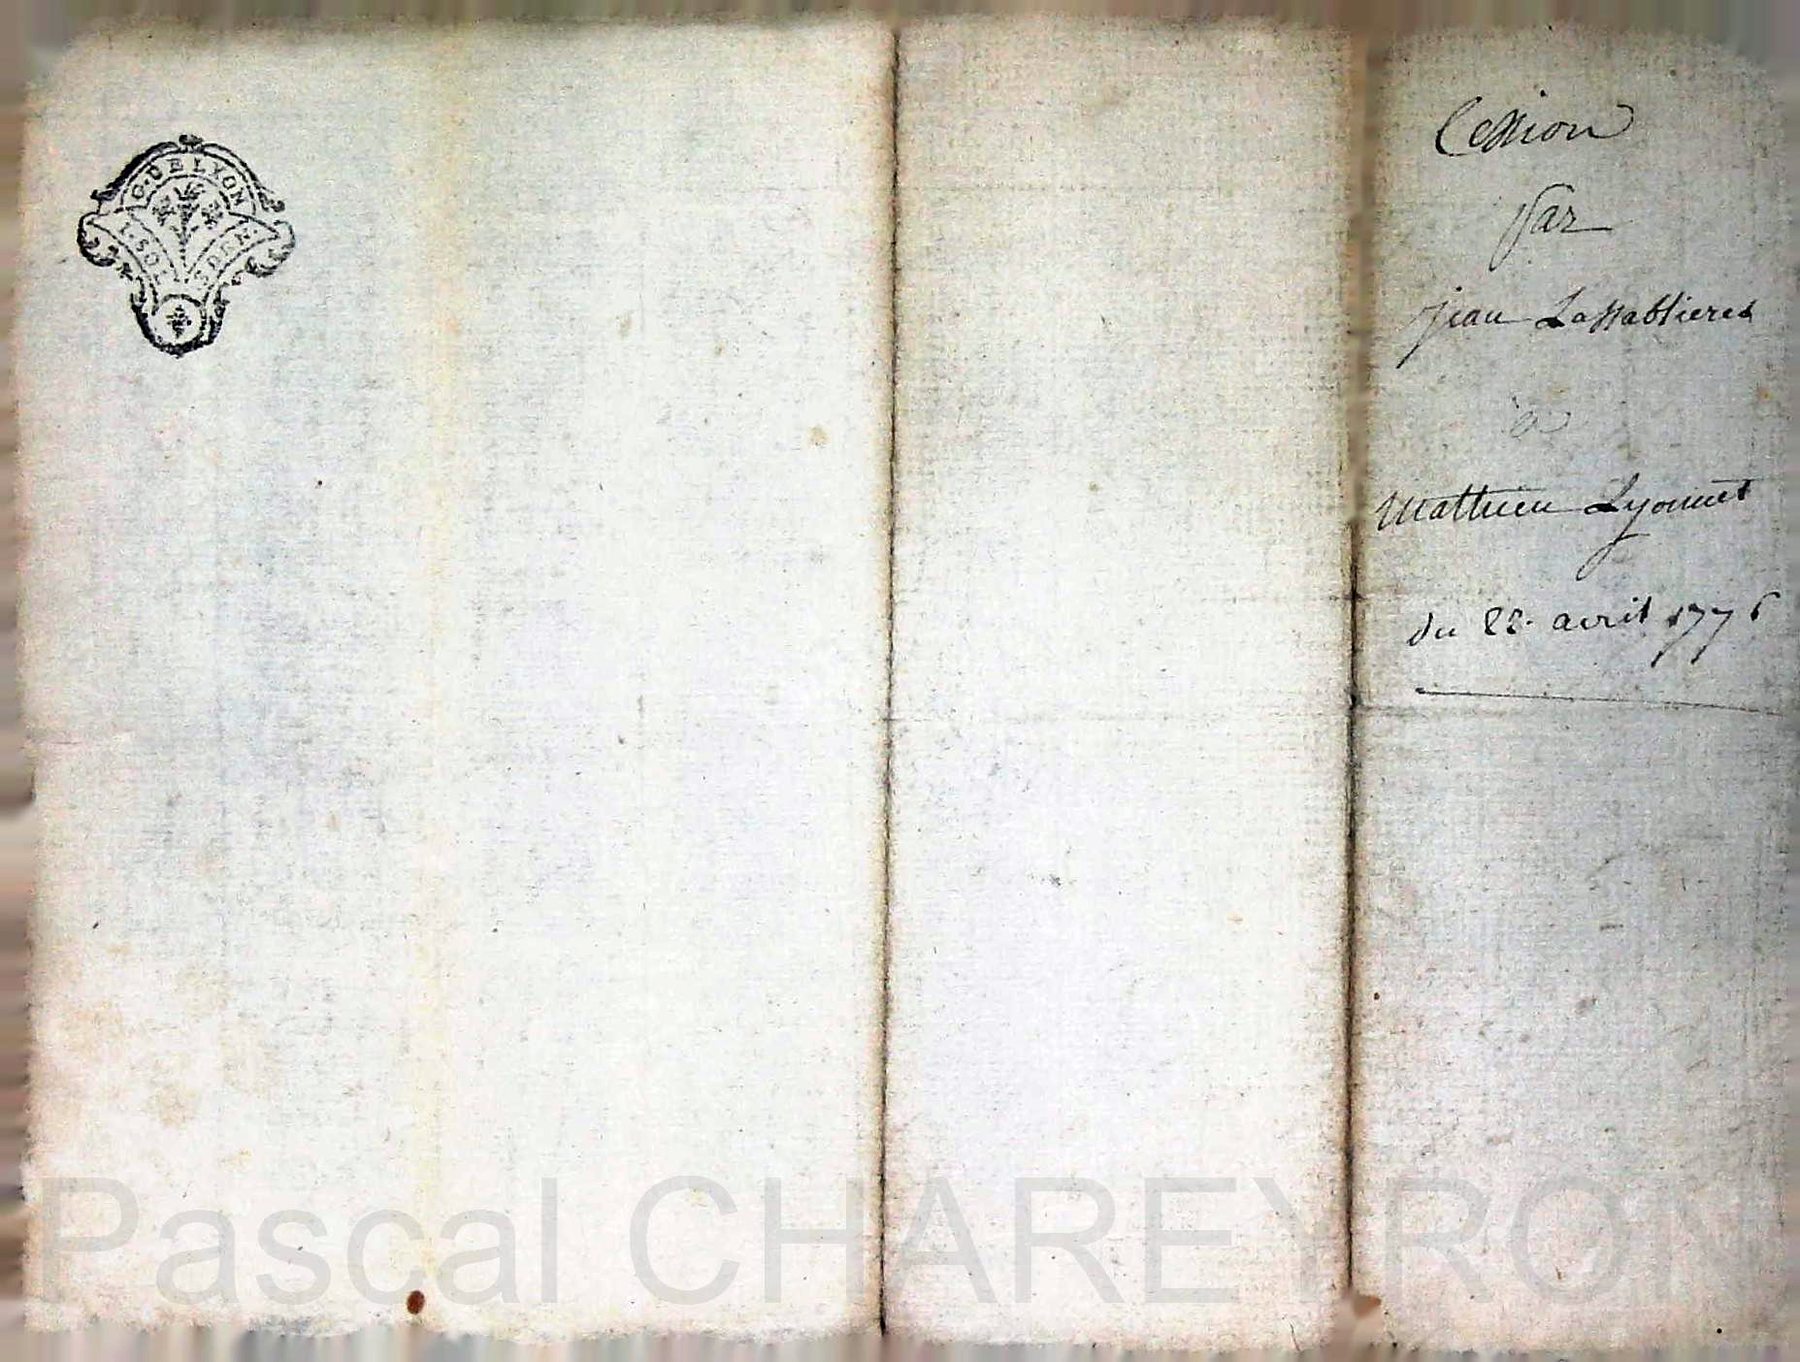 G. DE LYON
Cession
par
jean Lassablieres
à
Mathieu Lyonnet
du 22. avril 1776
Pascal CHAREYRON